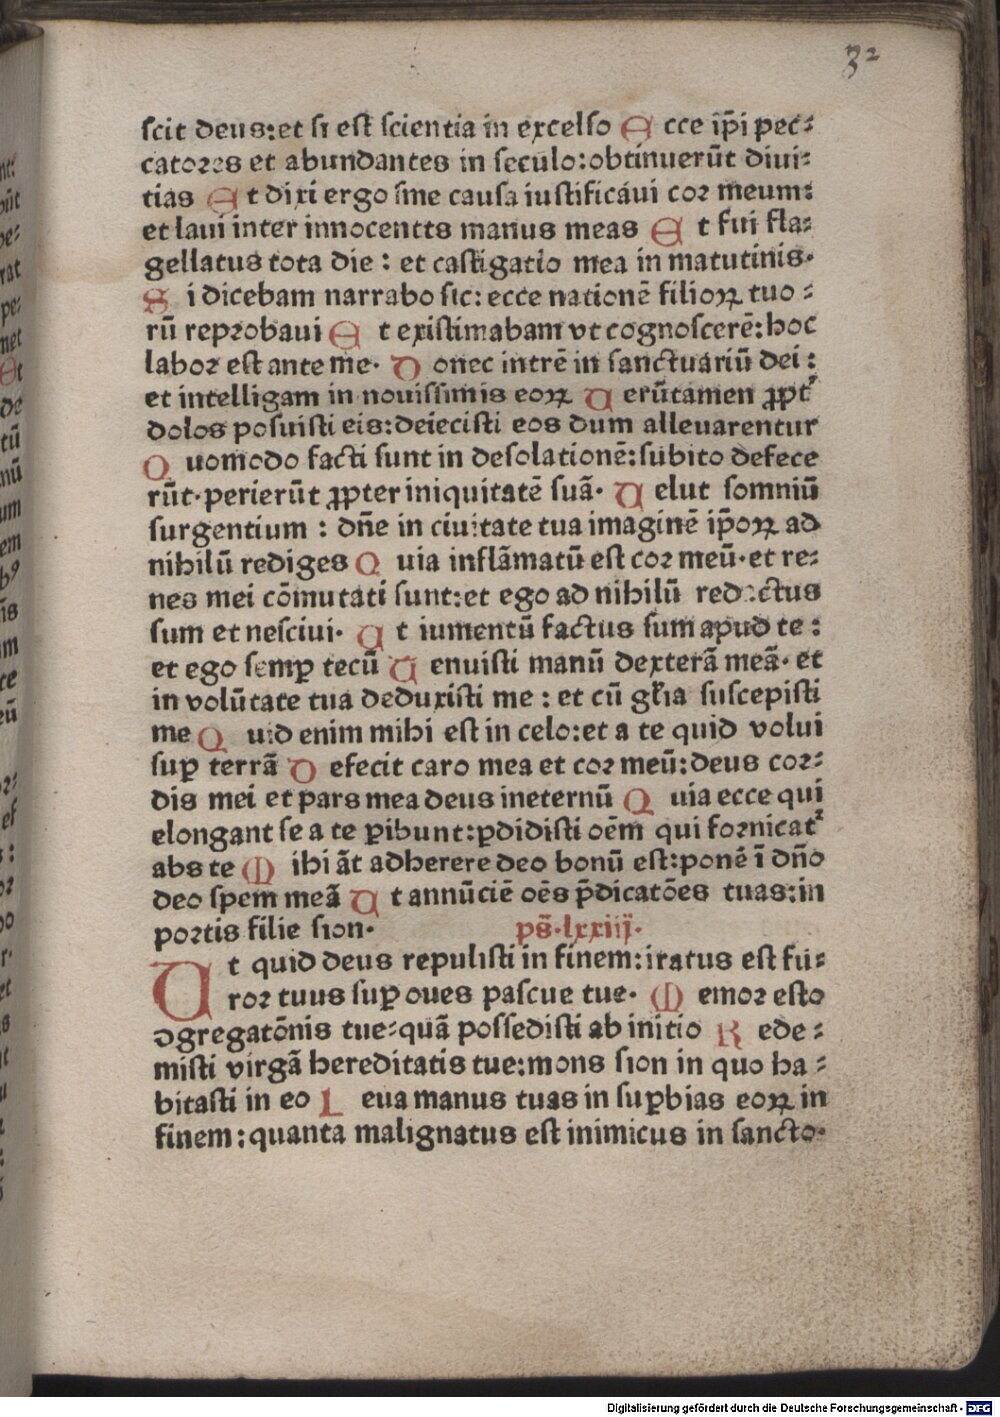 32
scit deus:et si est scientia in excelso Ecce ip̄i pec⸗
catores et abundantes in seculo:obtinuerūt diui⸗
tias Et dixi ergo sine causa iustificaui cor meum:
et laui inter innocentes manus meas Et fui fla⸗
gellatus tota die : et castigatio mea in matutinis·
Si dicebam narrabo sic: ecce nationē filioꝝ tuo⸗
rū reprobaui Et existimabam vt cognoscerē:hoc
labor est ante me· Donec intrē in sanctuariū dei :
et intelligam in nouissimis eoꝝ Uerūtamen ꝓpt̉
dolos posuisti eis:deiecisti eos dum alleuarentur
Quomodo facti sunt in desolationē:subito defece
rūt·perierūt ꝓpter iniquitatē suā· Uelut somniū
surgentium : dn̄e in ciuitate tua imaginē ip̄oꝝ ad
nihilū rediges Quia inflāmatū est cor meū·et re⸗
nes mei cōmutati sunt:et ego ad nihilū redactus
sum et nesciui· Ut iumentū factus sum apud te :
et ego semꝑ tecū Tenuisti manū dexterā meā· et
in volūtate tua deduxisti me : et cū gl̄ia suscepisti
me Quid enim mihi est in celo:et a te quid volui
suꝑ terrā Defecit caro mea et cor meū:deus cor⸗
dis mei et pars mea deus in eternū Quia ecce qui
elongant se a te ꝑibunt:ꝑdidisti oēm qui fornicat᷑
abs te Mihi āt adherere deo bonū est:ponē ī dn̄o
deo spem meā Ut annūciē oēs p̄dicatōes tuas:in
portis filie sion· ps̄·lxxiij·
Ut quid deus repulisti in finem:iratus est fu⸗
ror tuus suꝑ oues pascue tue· Memor esto
ꝯgregatōnis tue⸗quā possedisti ab initio Rede⸗
misti virgā hereditatis tue:mons sion in quo ha⸗
bitasti in eo Leua manus tuas in suꝑbias eoꝝ in
finem:quanta malignatus est inimicus in sancto·
Digitalisierung gefördert durch die Deutsche Forschungsgemeinschaft - DFG